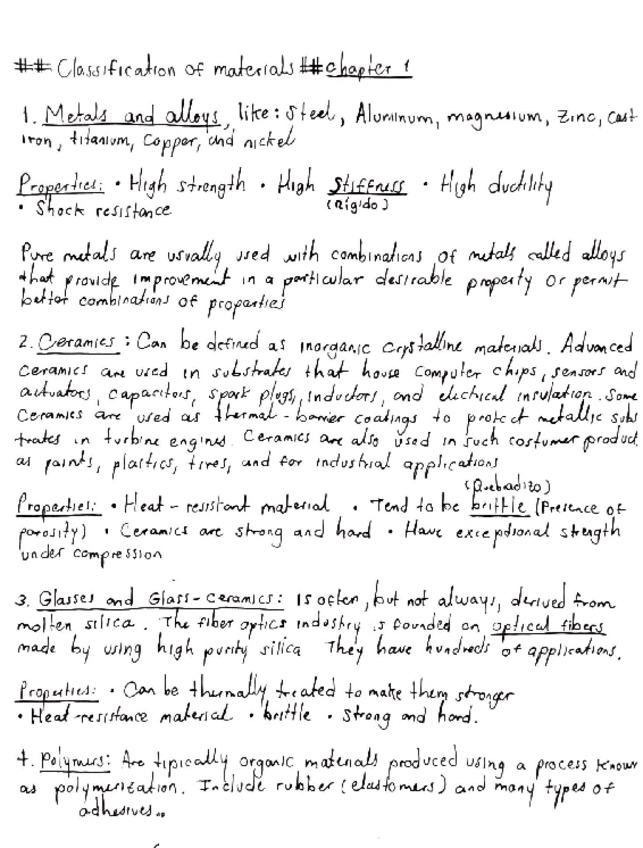 ## Classification of materials ## chapter 1
1. Metals and alloys, like: Steel, Aluminum, magnesium, Zinc, cast
iron, titanium, Copper, and nickel
Properties: • High strength • High Stiffness • High ductility
(Rígido)
• Shock resistance
Pure metals are usually used with combinations of metals called alloys
that provide improvement in a particular desirable property or permit
better combinations of properties
2. Ceramics: Can be defined as inorganic crystalline materials. Advanced
ceramics are used in substrates that house computer chips, sensors and
actuators, capacitors, spark plugs, inductors, and electrical insulation. Some
ceramics are used as thermal-barrier coatings to protect metallic subs
trates in turbine engines. Ceramics are also used in such costumer product
as paints, plastics, tires, and for industrial applications
(Quebadizo)
Properties: • Heat-resistant material • Tend to be brittle (Presence of
porosity) • Ceramics are strong and hard • Have exceptional strength
under compression
3. Glasses and Glass-Ceramics: Is often, but not always, derived from
molten silica. The fiber optics industry is founded on optical fibers
made by using high purity silica They have hundreds of applications.
Properties: • Can be thermally treated to make them stronger
• Heat-resistance material • brittle • Strong and hard.
4. Polymers: Are tipically organic materials produced using a process known
as polymerization. Include rubber (elastomers) and many types of
adhesives..